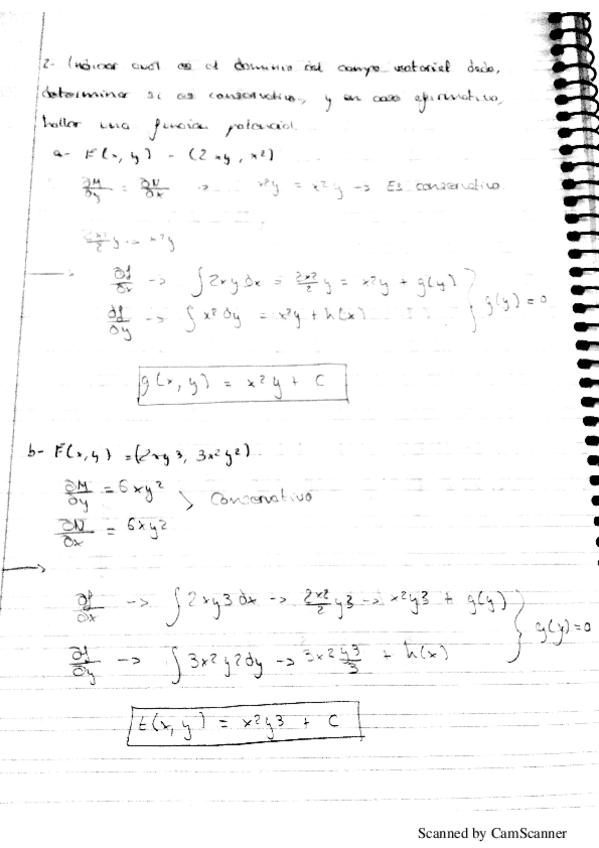 2- Indicar cual es el dominio del campo vectorial dado,
determinar si es conservativo, y en caso afirmativo,
hallar una función potencial.
a- F(x, y) = (2xy, x²)
∂M/∂y = ∂N/∂x -> x²y = x²y -> Es conservativo
2x²/2 y = x²y
∂f/∂x -> ∫ 2xy dx = 2x²/2 y = x²y + g(y)
∂f/∂y -> ∫ x² dy = x²y + h(x)
} g(y) = 0
g(x, y) = x²y + C
b- F(x,y) = (2xy3, 3x²y²)
∂M/∂y = 6xy²
∂N/∂x = 6xy²
> Conservativo
∂f/∂x -> ∫ 2xy3 dx -> 2x²/2 y3 -> x²y3 + g(y)
∂f/∂y -> ∫ 3x²y² dy -> 3x² y3/3 + h(x)
} g(y)=0
f(x, y) = x²y3 + C
Scanned by CamScanner